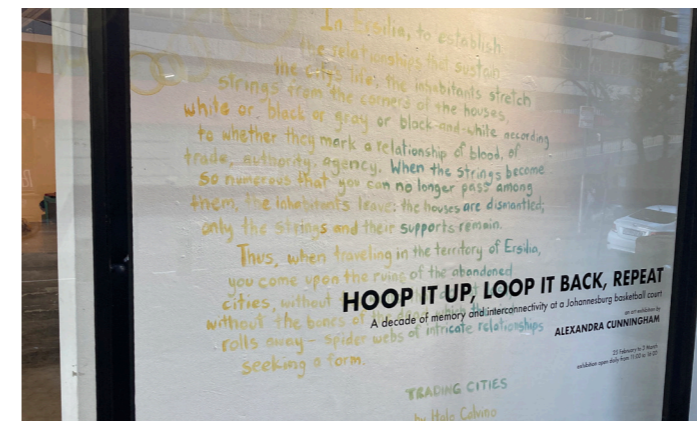 In Ersilia, to establish
the relationships that sustain
the city's life, the inhabitants stretch
strings from the corners of the houses,
white or black or gray or black-and-white according
to whether they mark a relationship of blood, of
trade, authority, agency. When the strings become
so numerous that you can no longer pass among
them, the inhabitants leave: the houses are dismantled;
only the strings and their supports remain.
Thus, when traveling in the territory of Ersilia,
you come upon the ruins of the abandoned
cities, without
without the bones of the
rolls away - spider webs of intricate relationships
seeking a form.
HOOP IT UP, LOOP IT BACK, REPEAT
A decade of memory and interconnectivity at a Johannesburg basketball court
an art exhibition by
ALEXANDRA CUNNINGHAM
exhibition open daily from
TRADING CITIES
by Italo Calvino